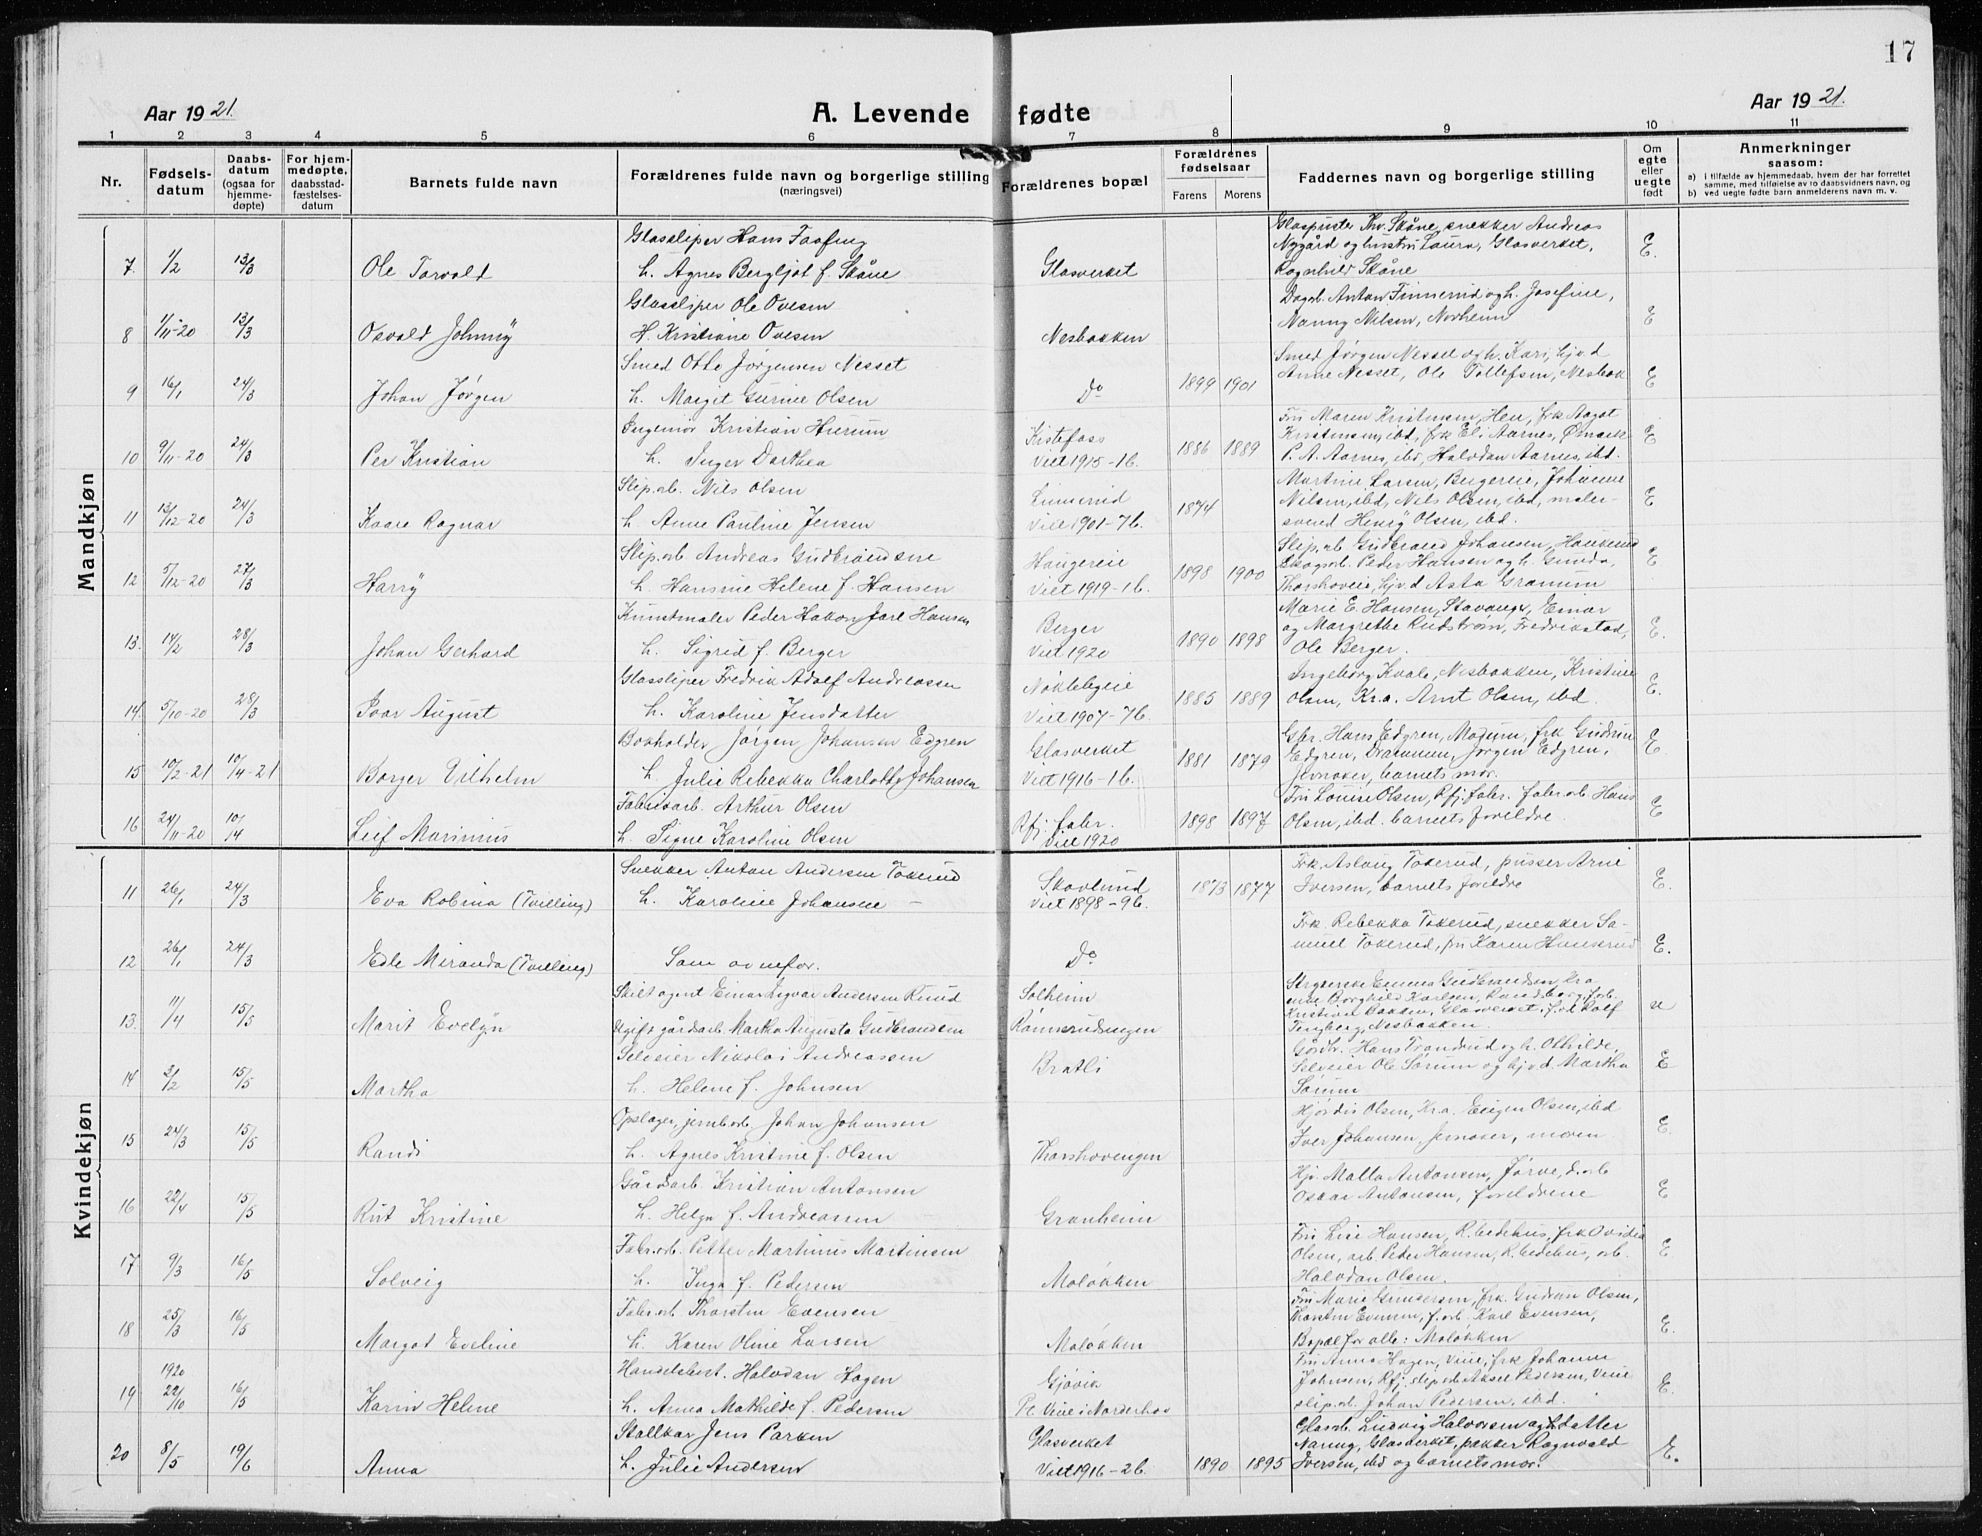 17
Aar 1921.
A. Levende fødte
Aar 1921.
1 2 3 4 5 6 7 8 9 10 11
Nr.
Fødsels-
datum
Daabs-
datum
(ogsaa for
hjemme-
døpte)
For hjem-
medøpte,
daabsstad-
fæstelses-
datum
Barnets fulde navn
Forældrenes fulde navn og borgerlige stilling
(næringsvei)
Forældrenes bopæl
Forældrenes
fødselsaar
Farens Morens
Faddernes navn og borgerlige stilling
Om
egte
eller
uegte
født
Anmerkninger
saasom:
a) i tilfælde av hjemmedaab, hvem der har forrettet
samme, med tilføielse av to daabsvidners navn, og
b) ved uegte fødte barn anmelderens navn m. v.
Mandkjøn
7. 1/2 13/3 Ole Torvald
Glassliper Hans Faafeng
h. Agnes Bergljot f. Skåne
Glasverket
Glaspuster Thv. Skåne, snekker Andreas
Nygård og hustru Laura, Glasverket,
Ragnhild Skåne
E.
8 1/11-20 13/3 Osvald Johnny
Glassliper Ole Ovesen
H. Kristiane Ovesen
Nesbakken
Dagarb. Anton Finnerud og h. Josefine,
Nanny Nilsen, Norheim
E
9 16/1 24/3 Johan Jørgen
Smed Otto Jørgensen Nesset
h. Marget Gurine Olsen
Do 1899 1901
Smed Jørgen Nesset og h. Kari, hjv.d
Anne Nesset, Ole Tollefsen, Nesbak
E
10 9/11-20 24/3 Per Kristian
Ingeniør Kristian Hierum
h. Inger Dorthea
Kistefoss
Viet 1915-1b. 1886 1889
Fru Maren Kristensen, Hen, frk Aagot
Kristensen, ibd, frk El. Aarnes, Ømark
P. A. Aarnes, ibd, Halvdan Aarnes, ibd.
E
11 13/12-20 24/3 Kaare Ragnar
Slip.arb. Nils Olsen
h. Anne Pauline Jensen
Linnerud
Viet 1901-7b. 1874
Martine Larsen, Bergereie, Johanne
Nilsen, ibd, Nils Olsen, ibd, maler-
svend Henry Olsen, ibd.
E
12 5/12-20 27/3 Harry
Slip.arb. Andreas Gudbrandsene
h. Hansine Helene f. Hansen
Haugereie
Viet 1919-1b. 1898 1900
Slip.arb. Gudbrand Johansen, Haukerud
Skogsarb. Peder Hansen og h. Gunda,
Thorshoveie, hjv.d Asta Granum
E
13. 14/2 28/3 Johan Gerhard
Kunstmaler Peder Hakon Jarl Hansen
h. Sigrid f. Berger
Berger
Viet 1920 1890 1898
Marie E. Hansen, Stavanger, Einar
og Margrethe Rudstrøm, Fredrikstad,
Ole Berger.
E.
14. 5/10-20 28/3 Ivar August
Glassliper Fredrik Adolf Andreassen
h. Karoline Jensdatter
Nøklebyeie
Viet 1907-7b. 1885 1889
Ingeborg Kvale, Nesbakken, Kristine
Olsen, Kr.a. Arnt Olsen, ibd.
E.
15 10/2-21 10/4-21 Borger Vilhelm
Bokholder Jørgen Johansen Edgren
h. Julie Rebekka Charlotte Johansen
Glasverket
Viet 1916-1b. 1881 1879
Gbr. Hans Edgren, Modum, frk Gudrun
Edgren, Drammen, Jørgen Edgren,
Jevnaker, barnets mor.
E.
16 24/11-20 10/4 Leif Marinius
Fabrikarb. Arthur Olsen
h. Signe Karoline Olsen
Rfj. fabr.
Viet 1920 1898 1897
Fru Louise Olsen, Rfj. fabr. fabr.arb Hans
Olsen, ibd. barnets foreldre.
E
Kvindekjøn
11 26/1 24/3 Eva Robina (Tvilling)
Snekker Anton Andersen Tokerud
h. Karoline Johansene
Skovlund
Viet 1898-9b. 1873 1877
Frk. Aslaug Tokerud, pusser Arne
Iversen, barnets foreldre
E.
12 26/1 24/3 Edle Miranda (Tvilling)
Som ovenfor.
Do
Frk. Rebekka Tokerud, snekker Sa-
muel Tokerud, fru Karen Haukerud
E.
13. 11/4 15/5 Marit Evelyn
Skiltagent Einar Ingvar Andersen Ruud
Ugift gårdarb. Martha Augusta Gudbrandsen
Solheim
Rønnerudengen
Strykerske Emma Gudbrandsen Kra
Borghild Karlsen, Randsborg, f.arb.
Kristian Bakken, Glasverket, f.arb Rolf
Tingberg, Nesbakken
u
14 3/2 15/5 Martha
Selveier Nikolai Andreassen
h. Helene f. Johnsen
Bratli
Gårdbr. Hans Trandrud og h. Othilde,
Selveier Ole Sørum og hjv.d Martha
Sørum
E
15 24/3 15/5 Randi
Opslager, jernb.arb. Johan Johansen
h. Agnes Kristine f. Olsen
Thorshovengen
Hjørdis Olsen, Kr.a. Eugen Olsen, ibd
Iver Johansen, Jevnaker, moren
E.
16 22/4 15/5 Rut Kristine
Gårdarb. Kristian Antonsen
h. Helga f. Andreassen
Granheim
Hjv. Malla Antonsen, Jorve, d.arb
Oskar Antonsen, foreldrene
E
17 9/3 16/5 Solveig
Fabr.arb. Petter Martinus Martinsen
h. Inga f. Pedersen
Moløkken
Fru Lise Hansen, R. bedehus, frk Ovidia
Olsen, arb. Peder Hansen, R. bedehus, arb.
Halvdan Olsen.
E
18 25/3 16/5 Margot Eveline
Fabr.arb Thorsten Evensen
h. Karen Oline Larsen
Moløkken
Fru Marie Gundersen, frk. Gudrun Olsen,
Thorsten Evensen, f.arb Karl Evensen,
Bopæl for alle: Moløkken
E.
19 1920 22/10 16/5 Karin Helene
Handelsbest. Halvdan Hagen
h. Anna Mathilde f. Pedersen
Gjøvik
Pt. Viul i Norderhov
Fru Anna Hagen, Viul, frk Johanne
Johnsen, Rfj, slip.arb Aksel Pedersen, Viul
slip.arb. Johan Pedersen, ibd.
E.
20 8/5 19/6 Anna
Stallkar Jens Parken
h. Julie Andersen
Glasverket
Viet 1916-2b. 1890 1895
Glasarb. Ludvig Halvorsen og datter
Nanny, Glasverket, pakker Ragnvald
Iversen, ibd og barnets mor.
E.